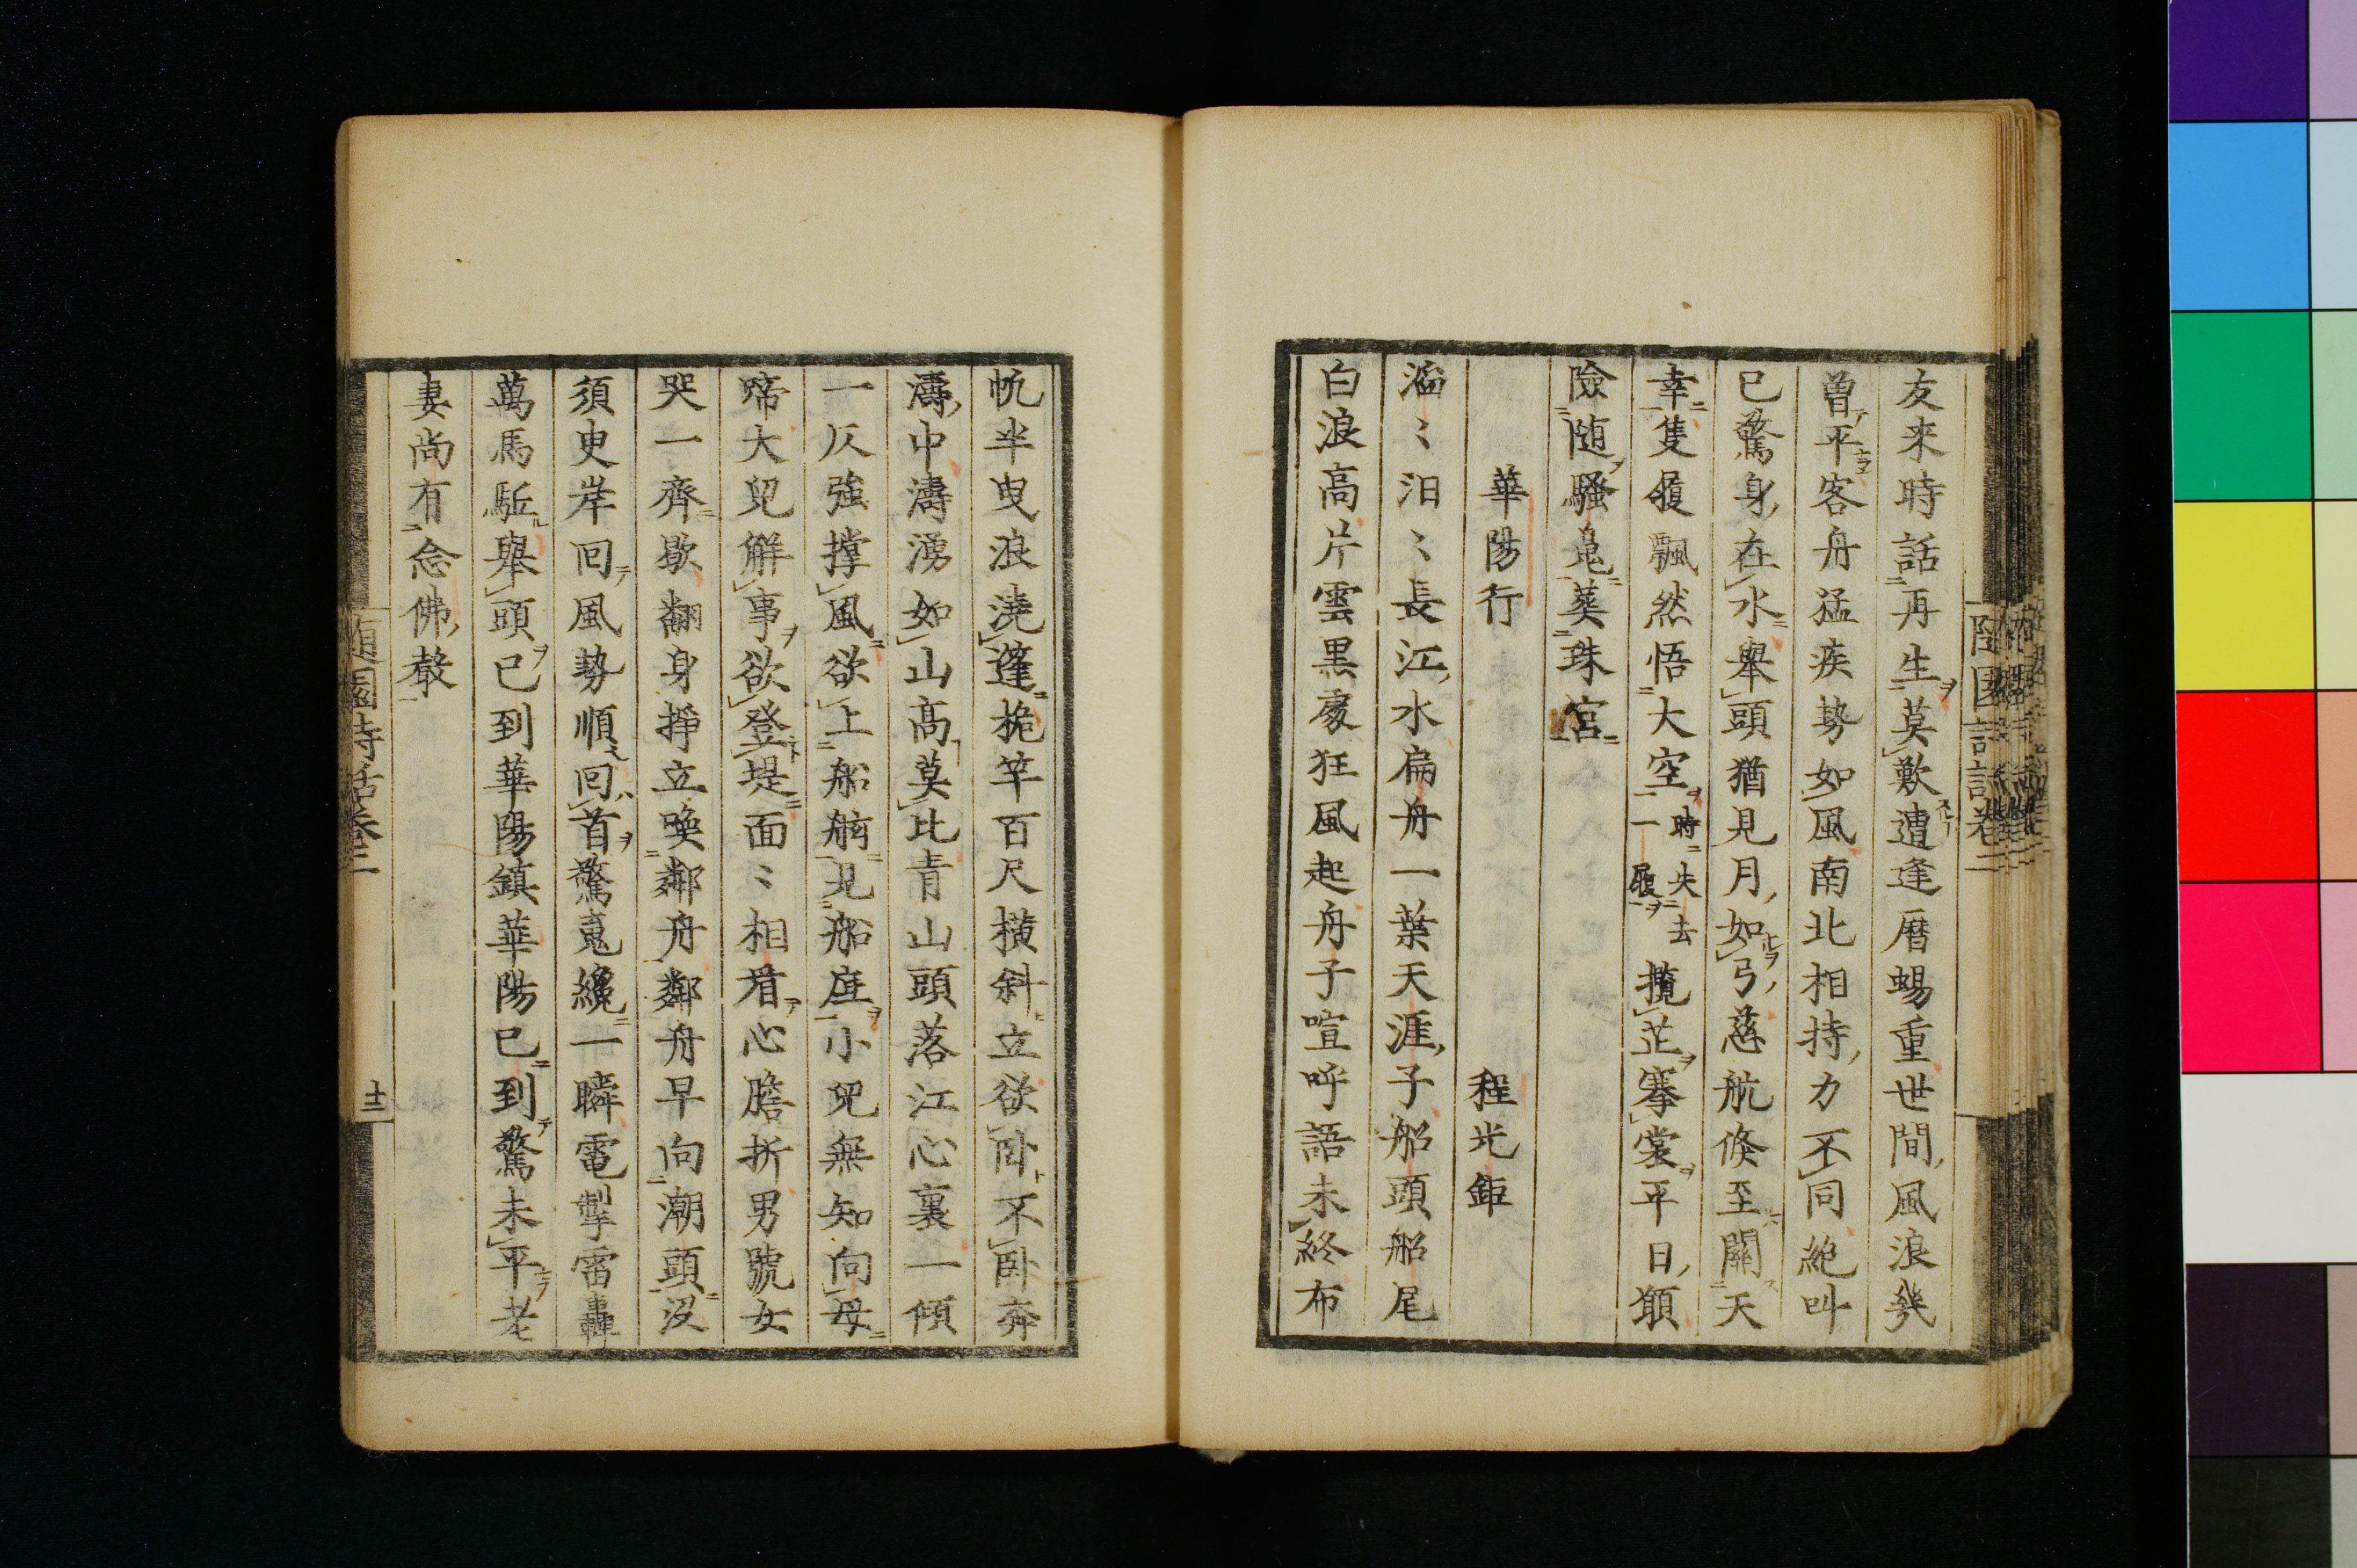 友来時話再生莫歎遭逢曆蜴重世間風浪幾
曽平客舟猛疾勢如風南北相持力不同絶叫
已驚身在水擧頭猶見月如弓慈航倏至關天
幸隻履飄然悟大空時失去一履攬芷搴裳平日願
險随騷鬼葬珠宮
華陽行 程光鉅
滔〻汨〻長江水扁舟一葉天涯子船頭船尾
白浪高片雲黒處狂風起舟子喧呼語未終布
帆半曳浪澆蓬桅竿百尺横斜立欲卧不卧奔
濤中濤湧如山高莫比青山山頭落江心裏一傾
一仄強撑風欲上船舷見船底小兒無知向母
啼大兒解事欲登堤面〻相看心膽折男號女
哭一齊歇翻身掙立喚鄰舟鄰舟早向潮頭沒
須臾岸回風勢順回首驚䰟纔一瞬電掣雷轟
萬馬駈擧頭已到華陽鎮華陽已到驚未平老
妻尚有念佛聲
隨園詩話卷二
十二